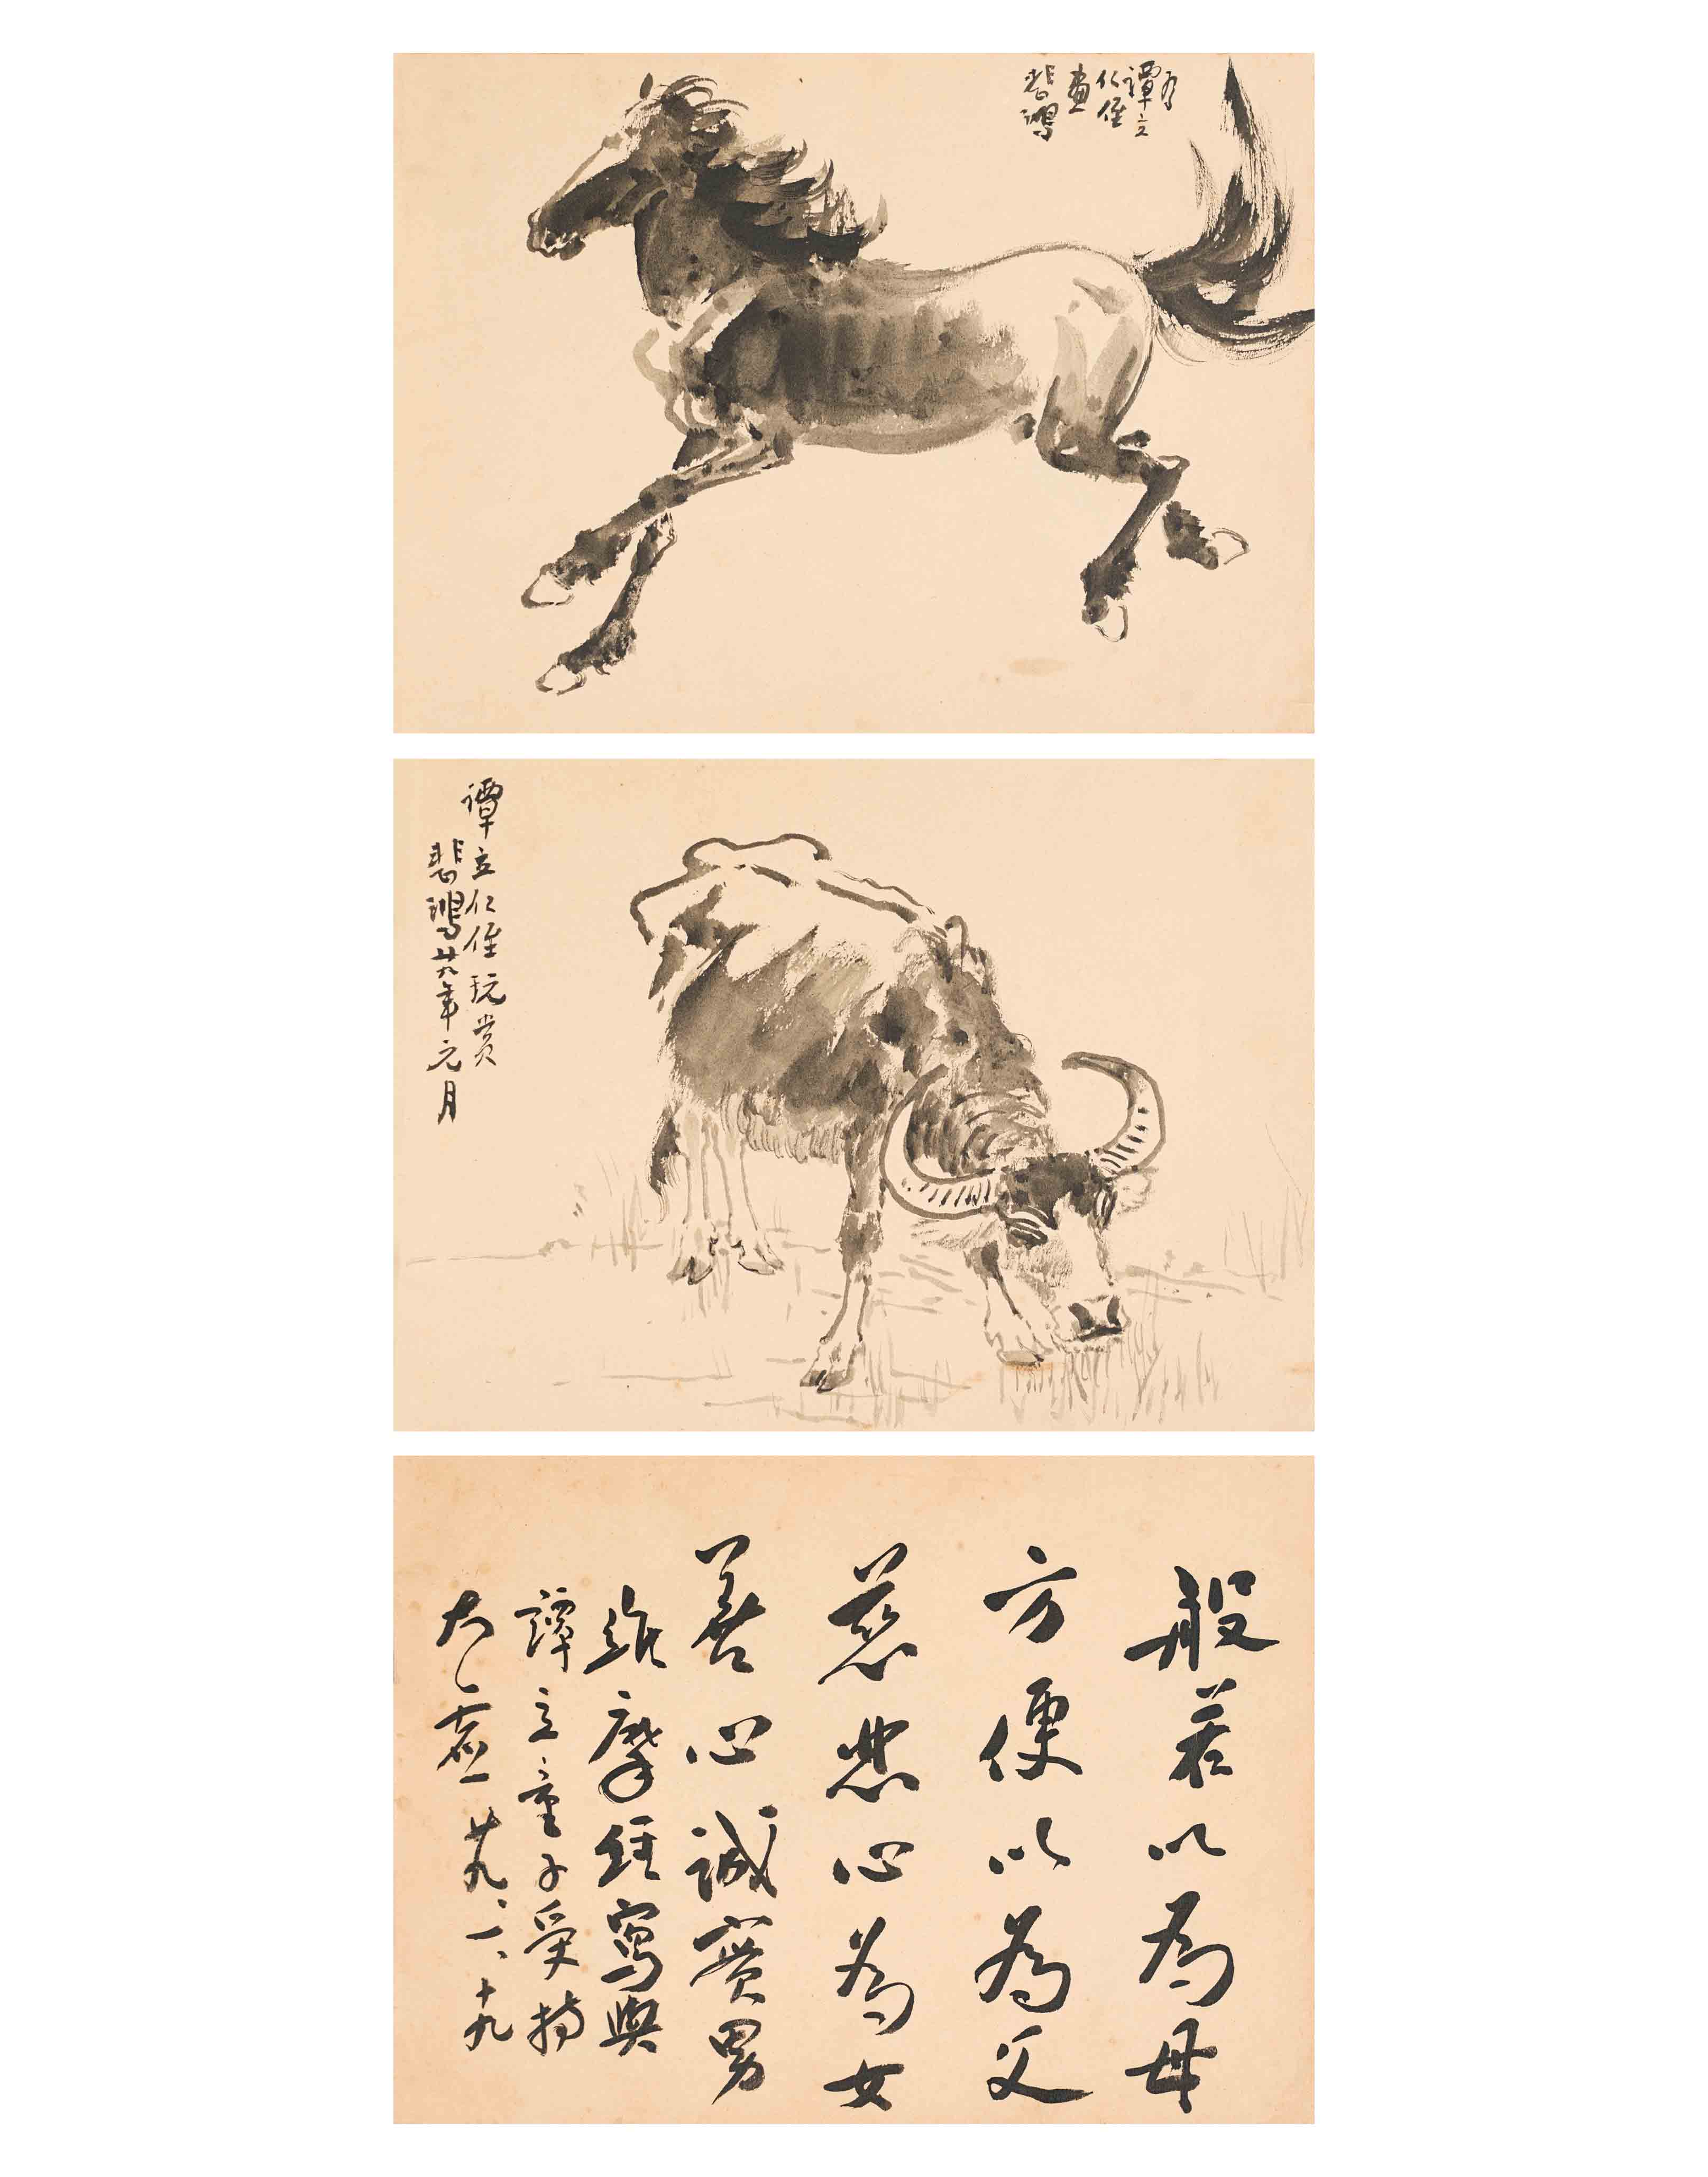 為
譚立
仁侄
畫
悲鴻
譚立仁侄玩賞
悲鴻廿九年元月
般若以為母
方便以為父
慈悲心為女
善心誠實男
維摩經寫與
譚立童子受持
太虛 廿九、一、十九